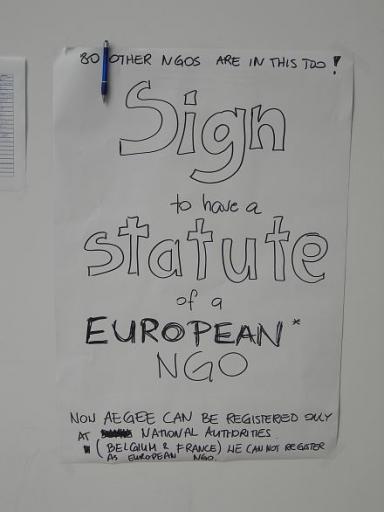 80 OTHER NGOS ARE IN THIS TOO!
Sign
to have a
statute
of a
EUROPEAN*
NGO
NOW AEGEE CAN BE REGISTERED ONLY
AT NATIONAL AUTHORITIES
(BELGIUM & FRANCE) WE CAN NOT REGISTER
AS EUROPEAN NGO.